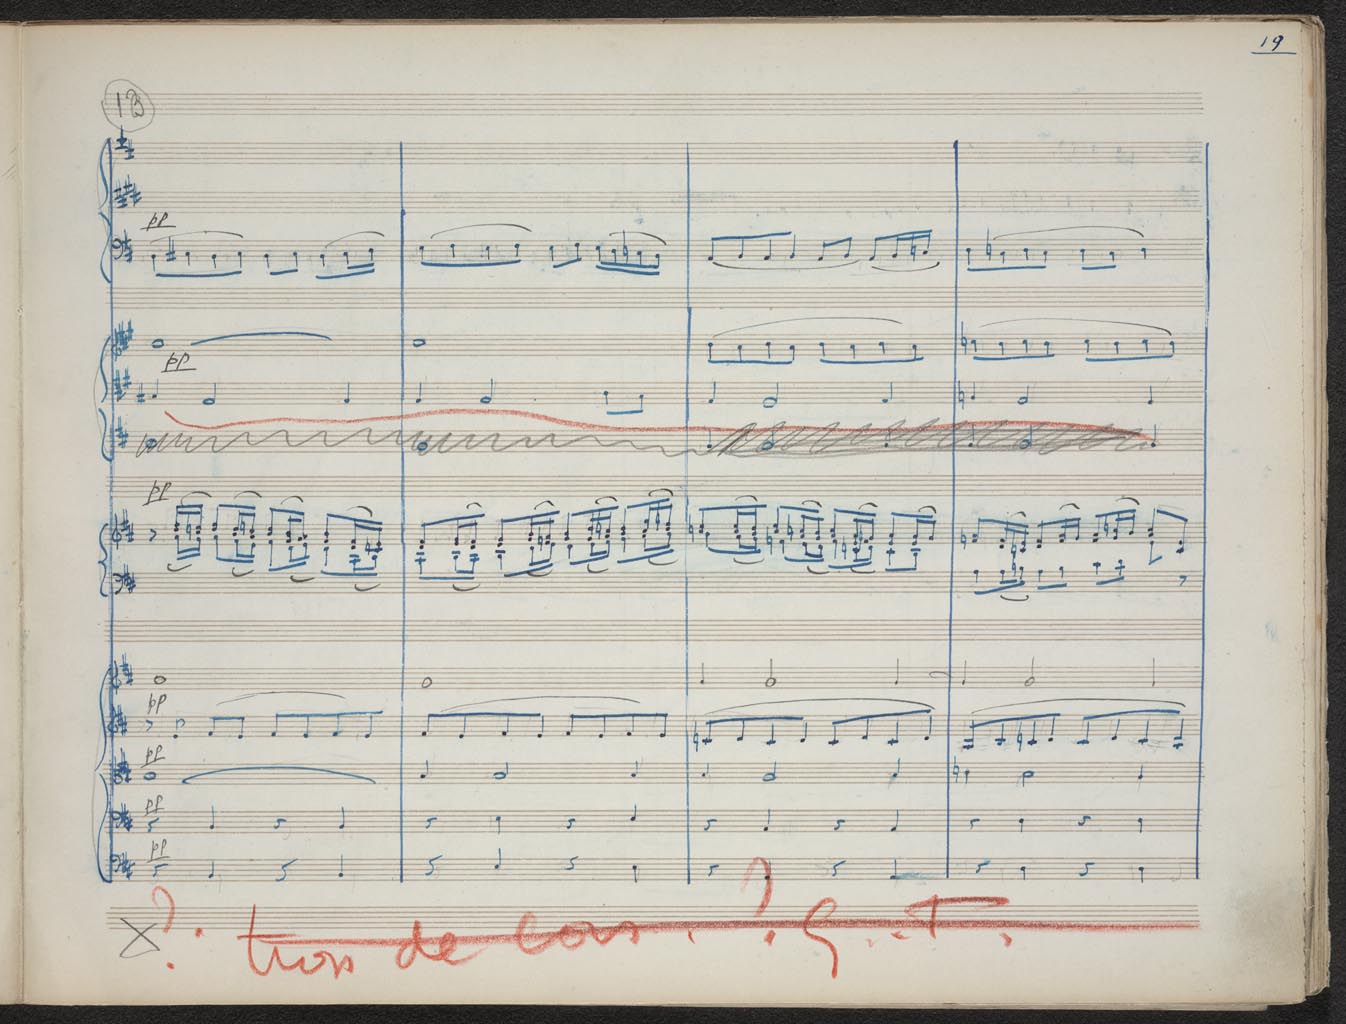 19
13
pp
pp
pp
pp
pp
pp
pp
?. trop de cors. ? G. T.